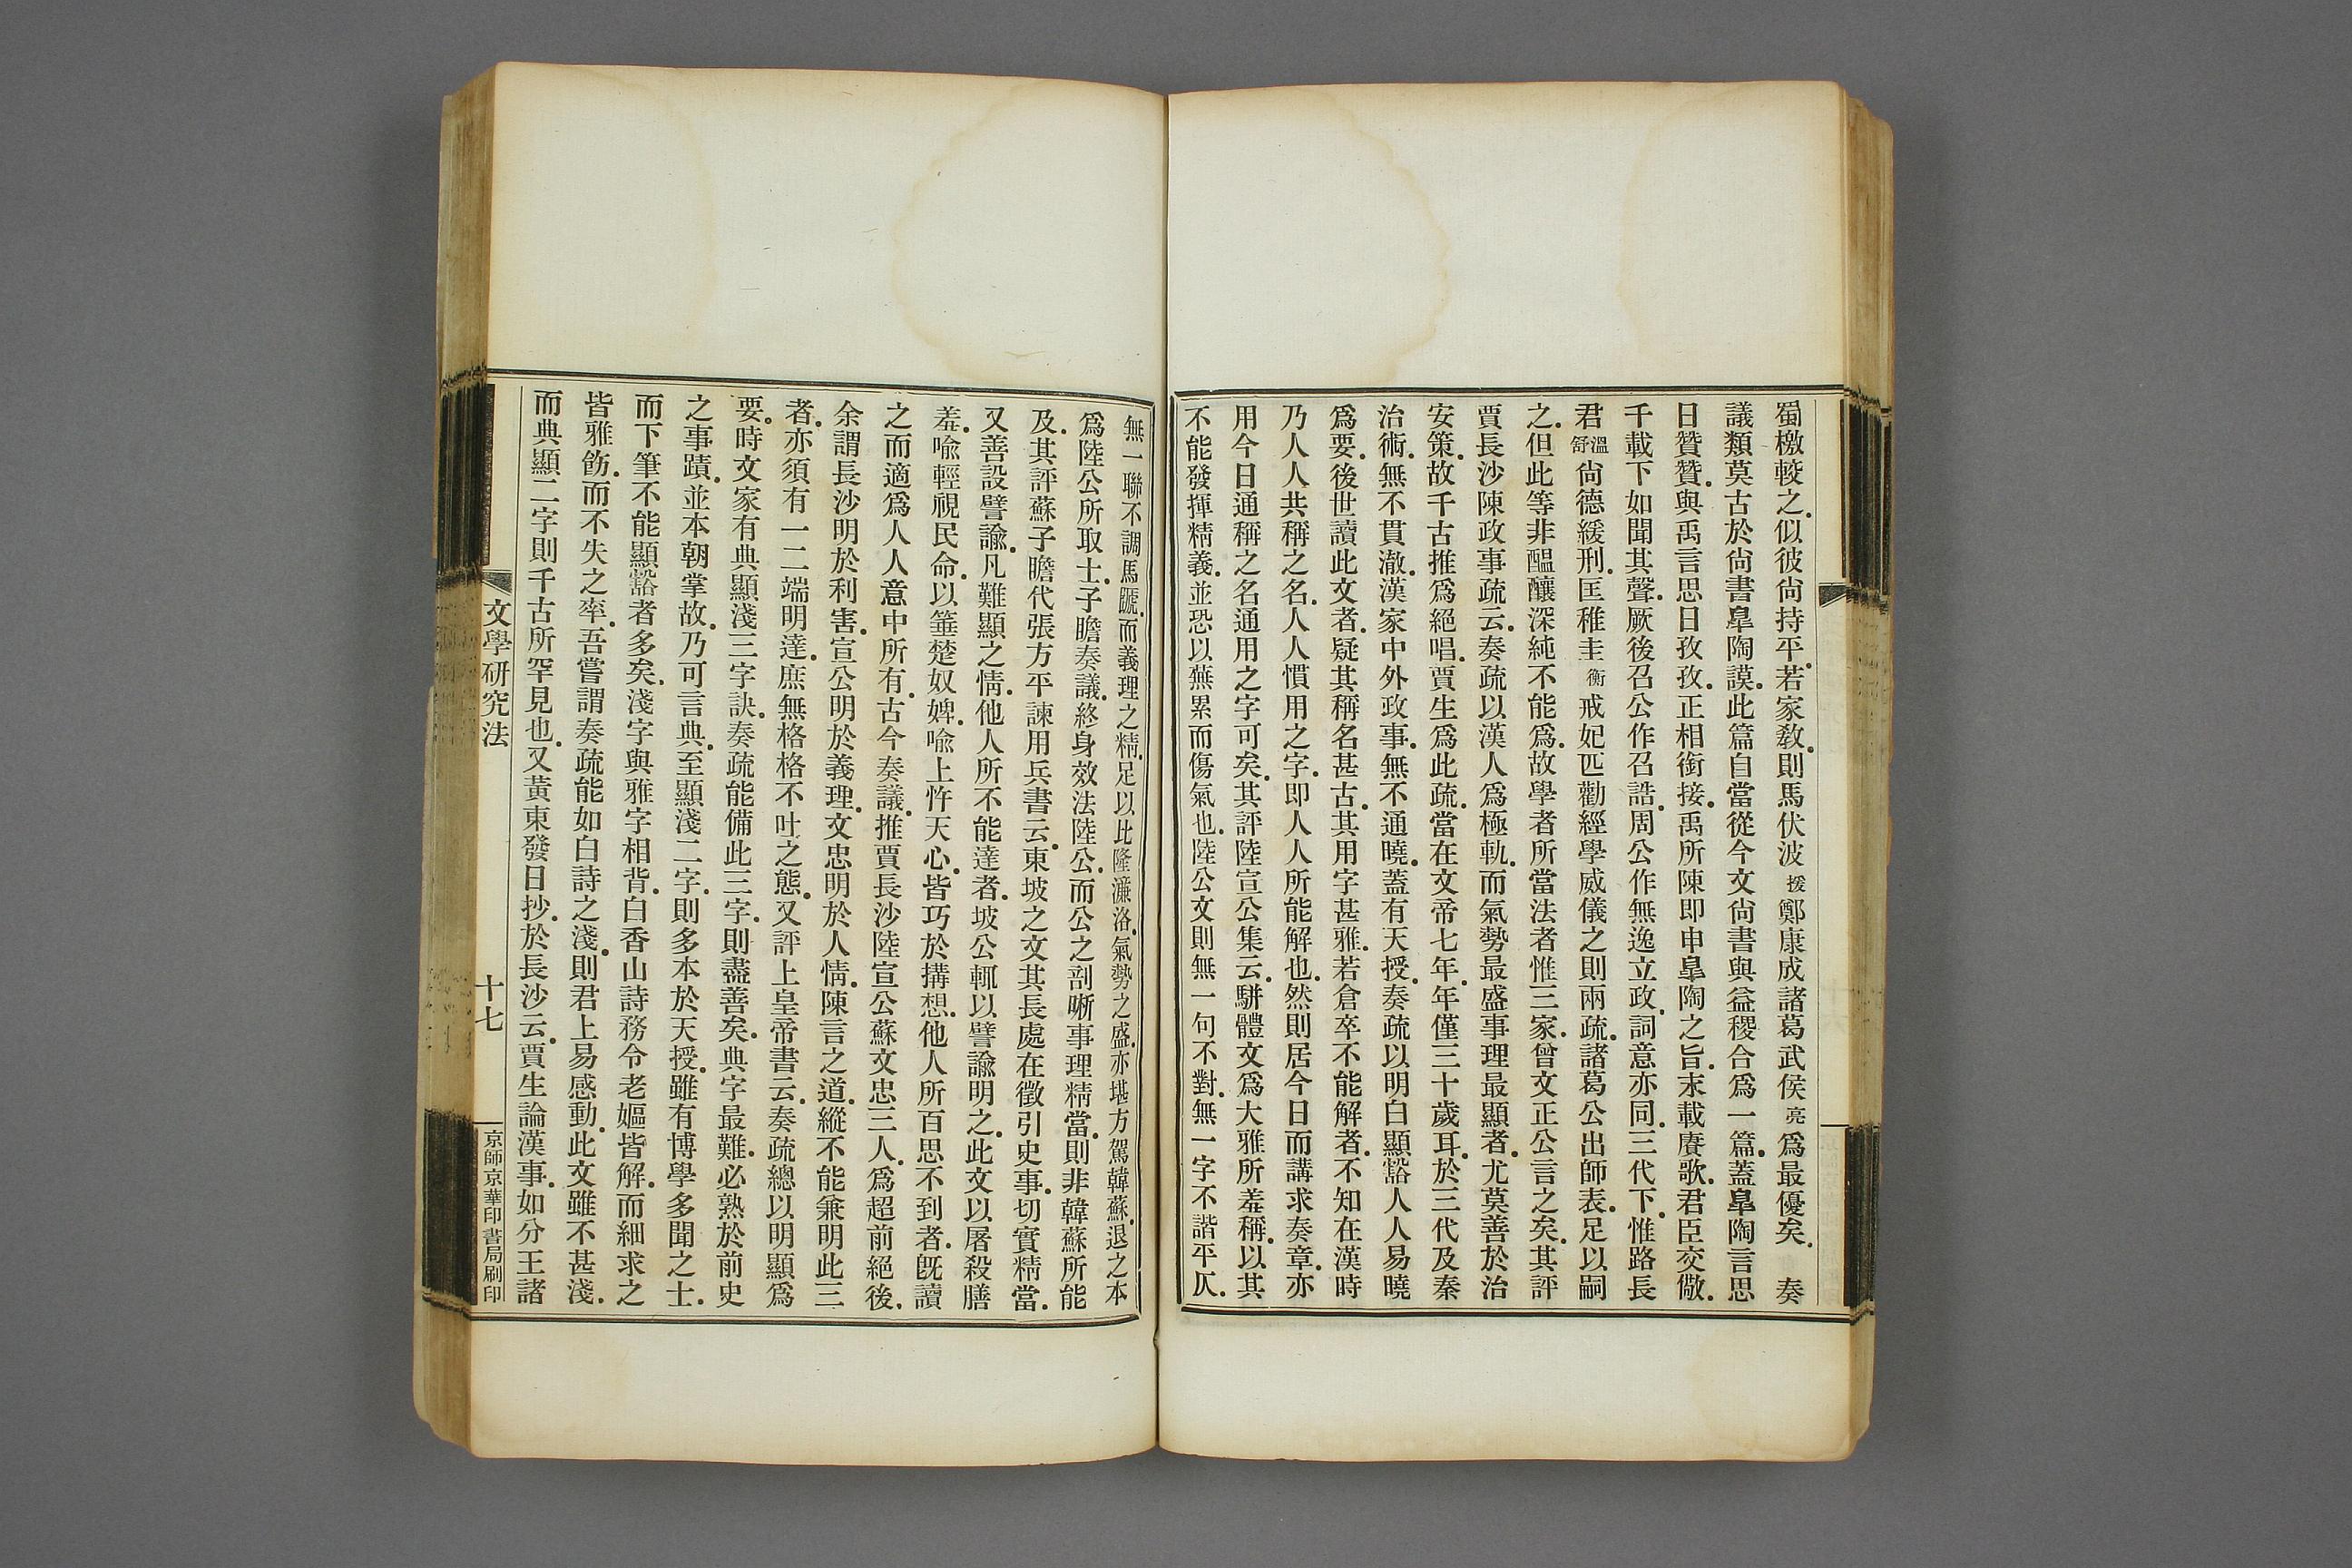 蜀檄較之.似彼尙持平.若家敎.則馬伏波援鄭康成諸葛武侯亮爲最優矣.　奏
議類莫古於尙書臯陶謨.此篇自當從今文尙書與益稷合爲一篇.蓋臯陶言思
日贊贊.與禹言思日孜孜.正相銜接.禹所陳即申臯陶之旨.末載賡歌.君臣交儆.
千載下如聞其聲.厥後召公作召誥.周公作無逸立政.詞意亦同.三代下.惟路長
君溫舒尙德緩刑.匡稚圭衡戒妃匹勸經學威儀之則兩疏.諸葛公出師表.足以嗣
之.但此等非醞釀深純不能爲.故學者所當法者惟三家.曾文正公言之矣.其評
賈長沙陳政事疏云.奏疏以漢人爲極軌.而氣勢最盛事理最顯者.尤莫善於治
安策.故千古推爲絕唱.賈生爲此疏.當在文帝七年.年僅三十歲耳.於三代及秦
治術.無不貫澈.漢家中外政事.無不通曉.蓋有天授.奏疏以明白顯豁人人易曉
爲要.後世讀此文者.疑其稱名甚古.其用字甚雅.若倉卒不能解者.不知在漢時
乃人人共稱之名.人人慣用之字.即人人所能解也.然則居今日而講求奏章.亦
用今日通稱之名通用之字可矣.其評陸宣公集云.駢體文爲大雅所羞稱.以其
不能發揮精義.並恐以蕪累而傷氣也.陸公文則無一句不對.無一字不諧平仄.
無一聯不調馬蹏.而義理之精.足以比隆濂洛.氣勢之盛.亦堪方駕韓蘇.退之本
爲陸公所取士.子瞻奏議.終身效法陸公.而公之剖晰事理精當.則非韓蘇所能
及.其評蘇子瞻代張方平諫用兵書云.東坡之文其長處在徵引史事.切實精當.
又善設譬諭.凡難顯之情.他人所不能達者.坡公輒以譬諭明之.此文以屠殺膳
羞.喻輕視民命.以箠楚奴婢.喻上忤天心.皆巧於搆想.他人所百思不到者.旣讀
之而適爲人人意中所有.古今奏議.推賈長沙陸宣公蘇文忠三人.爲超前絕後.
余謂長沙明於利害.宣公明於義理.文忠明於人情.陳言之道.縱不能兼明此三
者.亦須有一二端明達.庶無格格不吐之態.又評上皇帝書云.奏疏總以明顯爲
要.時文家有典顯淺三字訣.奏疏能備此三字.則盡善矣.典字最難.必熟於前史
之事蹟.並本朝掌故.乃可言典.至顯淺二字.則多本於天授.雖有博學多聞之士.
而下筆不能顯豁者多矣.淺字與雅字相背.白香山詩務令老嫗皆解.而細求之
皆雅飭.而不失之率.吾嘗謂奏疏能如白詩之淺.則君上易感動.此文雖不甚淺.
而典顯二字則千古所罕見也.又黃東發日抄.於長沙云.賈生論漢事.如分王諸
文學研究法
十七
京師京華印書局刷印